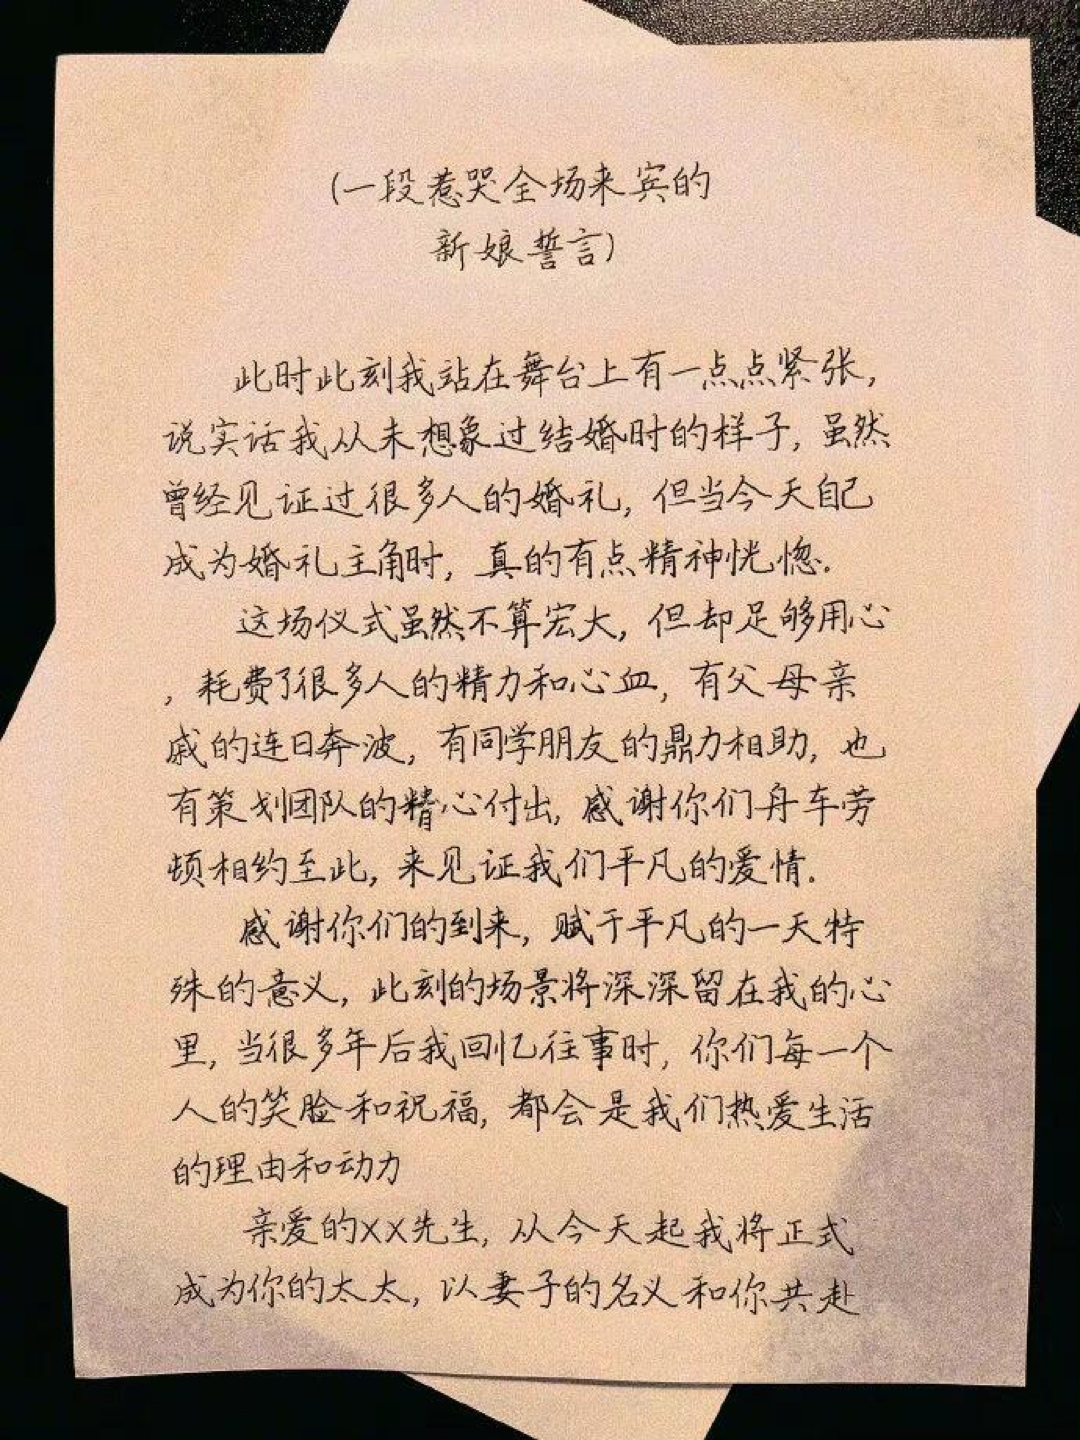 (一段惹哭全场来宾的
新娘誓言)
此时此刻我站在舞台上有一点点紧张,
说实话我从未想象过结婚时的样子, 虽然
曾经见证过很多人的婚礼, 但当今天自己
成为婚礼主角时, 真的有点精神恍惚.
这场仪式虽然不算宏大, 但却足够用心
, 耗费了很多人的精力和心血, 有父母亲
戚的连日奔波, 有同学朋友的鼎力相助, 也
有策划团队的精心付出, 感谢你们舟车劳
顿相约至此, 来见证我们平凡的爱情.
感谢你们的到来, 赋于平凡的一天特
殊的意义, 此刻的场景将深深留在我的心
里, 当很多年后我回忆往事时, 你们每一个
人的笑脸和祝福, 都会是我们热爱生活
的理由和动力
亲爱的XX先生, 从今天起我将正式
成为你的太太, 以妻子的名义和你共赴